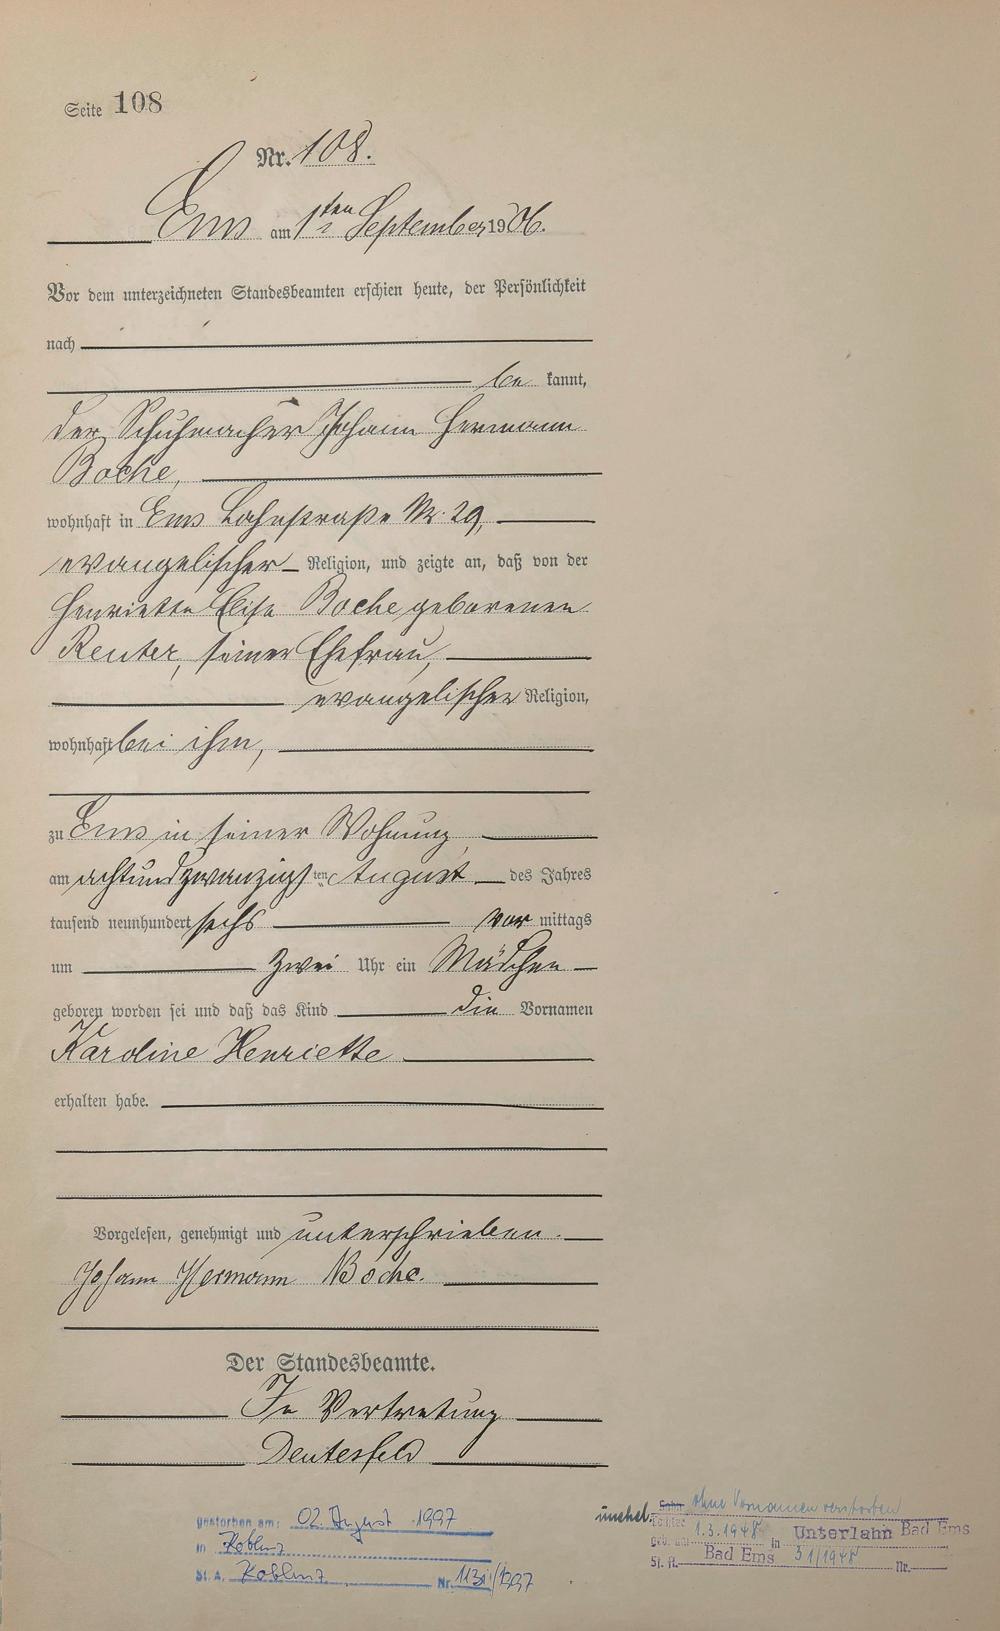 Seite 108
Nr. 108.
Ems am 1ten September 1906.
Vor dem unterzeichneten Standesbeamten erschien heute, der Persönlichkeit
nach
be kannt,
der Schuhmacher Johann Hermann
Boche,
wohnhaft in Ems Lahnstraße Nr. 29,
evangelischer Religion, und zeigte an, daß von der
Henriette Elise Boche geborenen
Reuter, seiner Ehefrau,
evangelischer Religion,
wohnhaft bei ihm,
zu Ems in seiner Wohnung
am achtundzwanzigsten August des Jahres
tausend neunhundert sechs vor mittags
um zwei Uhr ein Mädchen
geboren worden sei und daß das Kind die Vornamen
Karoline Henriette
erhalten habe.
Vorgelesen, genehmigt und unterschrieben.
Johann Hermann Boche.
Der Standesbeamte.
In Vertretung
Deutesfeld
gestorben am: 02. August 1997
in Koblenz
St. A. Koblenz Nr. /1997
unehel. Sohn ohne Vornamen verstorben
Tochter
geb. am 1.3.1948 in Unterlahn Bad Ems
St. A. Bad Ems 31/1948 Nr.